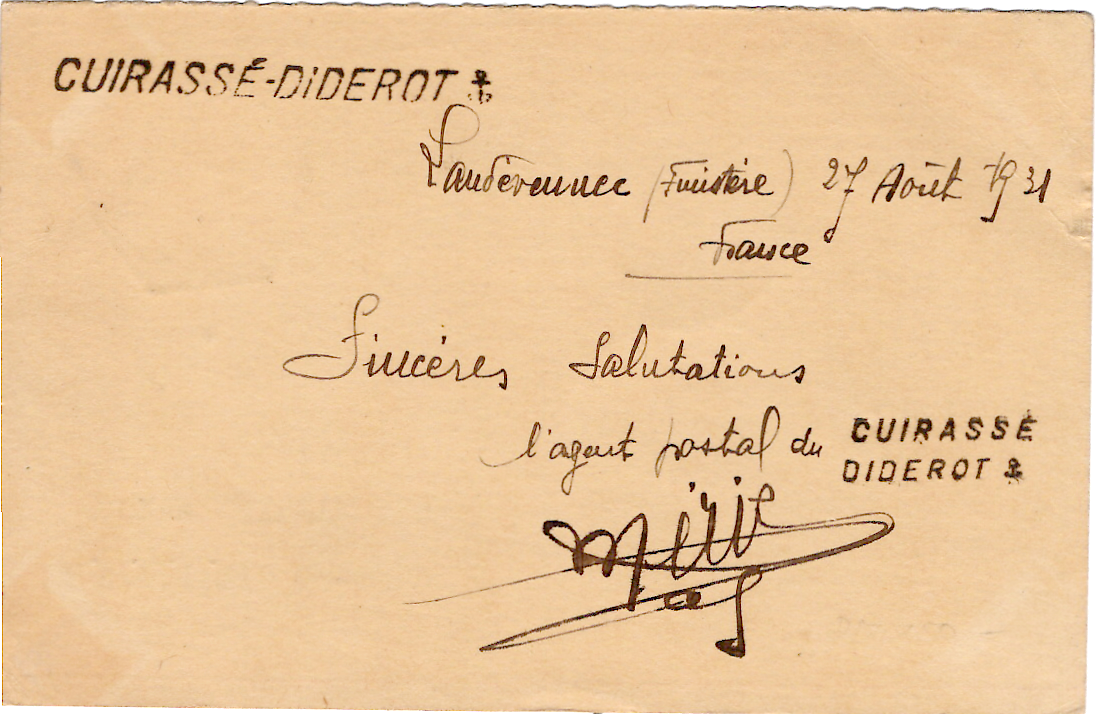 CUIRASSÉ-DIDEROT ⚓
Landévennec (Finistère) 27 Août 1931
France
Sincères Salutations
l'agent postal du CUIRASSÉ
DIDEROT ⚓